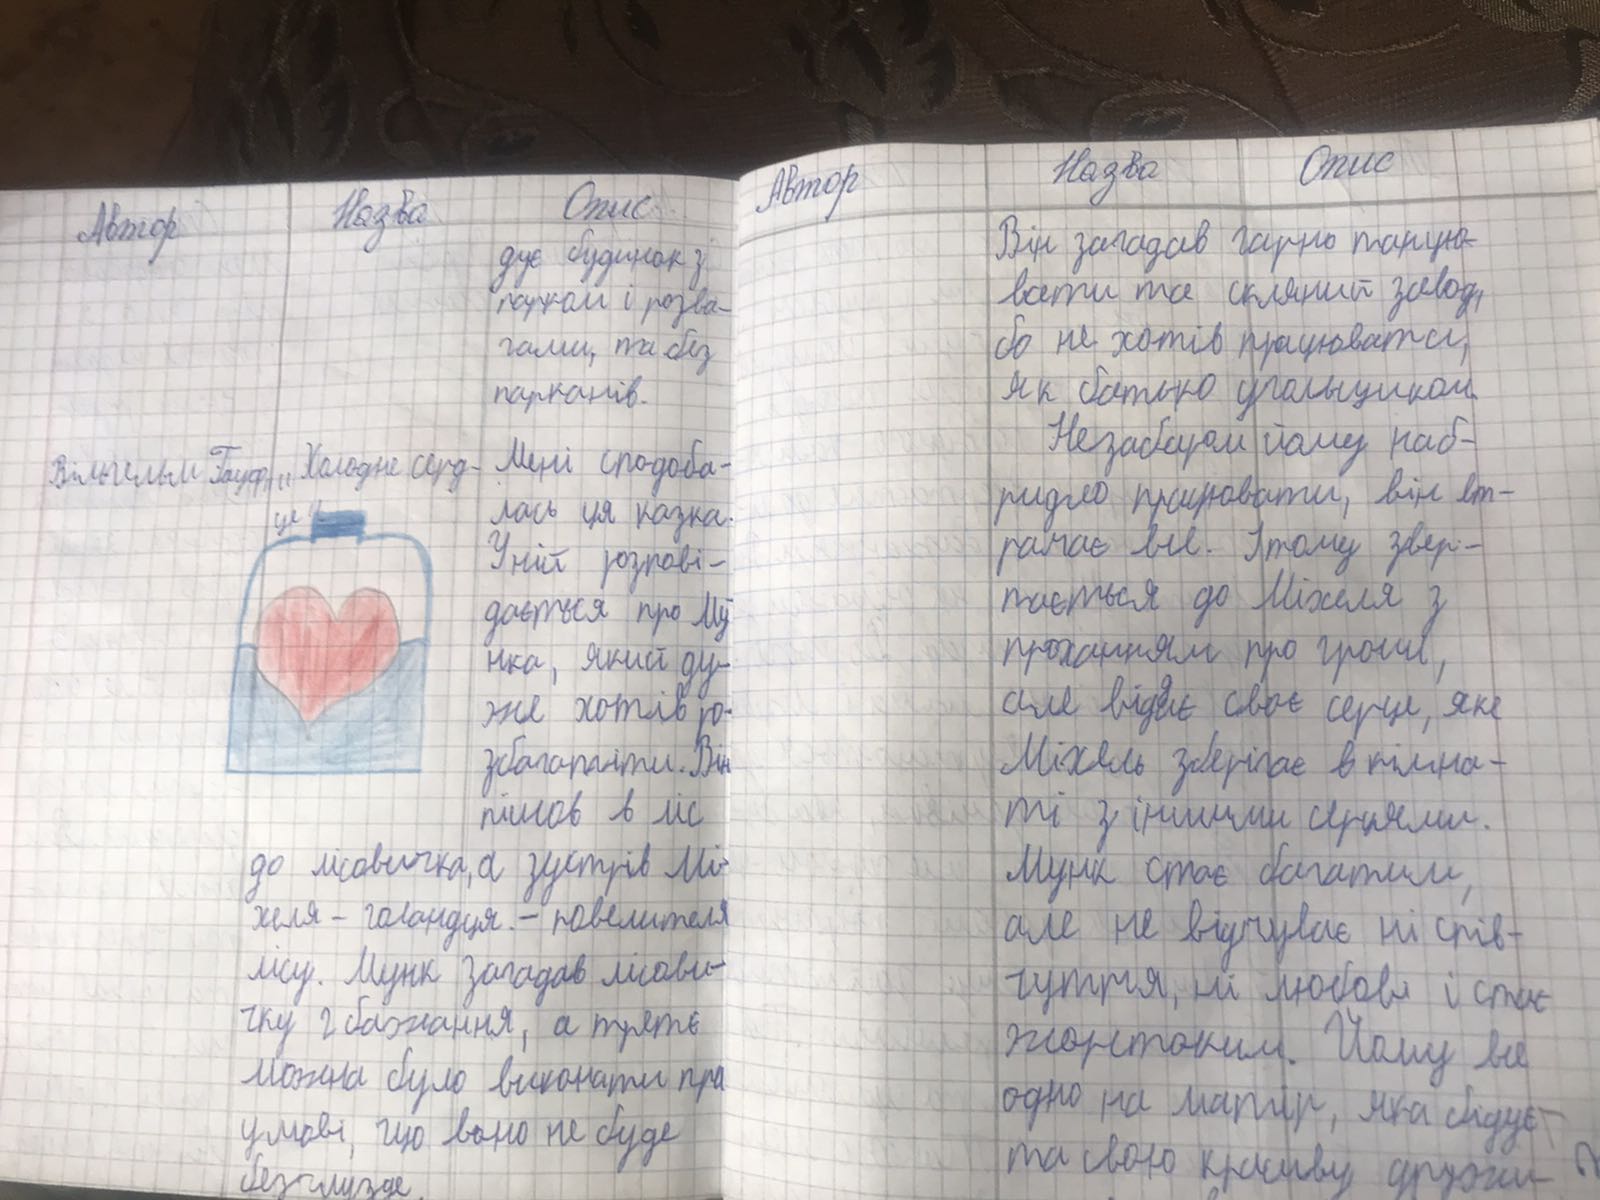 Автор Назва Опис
дує будинок з
парком і розва-
гами, та без
парканів.
Вільгельм Гауф „Холодне серд-
це"
Мені сподоба-
лась ця казка.
У ній розпові-
дається про Му
нка, який ду-
же хотів ро-
збагатіти. Він
пішов в ліс
до лісовичка, а зустрів Мі-
хеля - голандця. - повелителя
лісу. Мунк загадав лісови-
чку 2 бажання, а третє
можна було виконати при
умові, що воно не буде
безглузде.
Автор Назва Опис
Він загадав гарно танцю-
вати та скляний завод,
бо не хотів працювати,
як батько угольщиком.
Незабаром йому наб-
ридло працювати, він вт-
рачає все. І тому звер-
тається до Міхеля з
проханням про гроші,
але віддає своє серце, яке
Міхель зберігає в кімна-
ті з іншими серцями.
Мунк стає багатим,
але не відчуває ні спів-
чуття, ні любові і стає
жорстоким. Йому все
одно на матір, яка бідує
та свою красиву дружи-